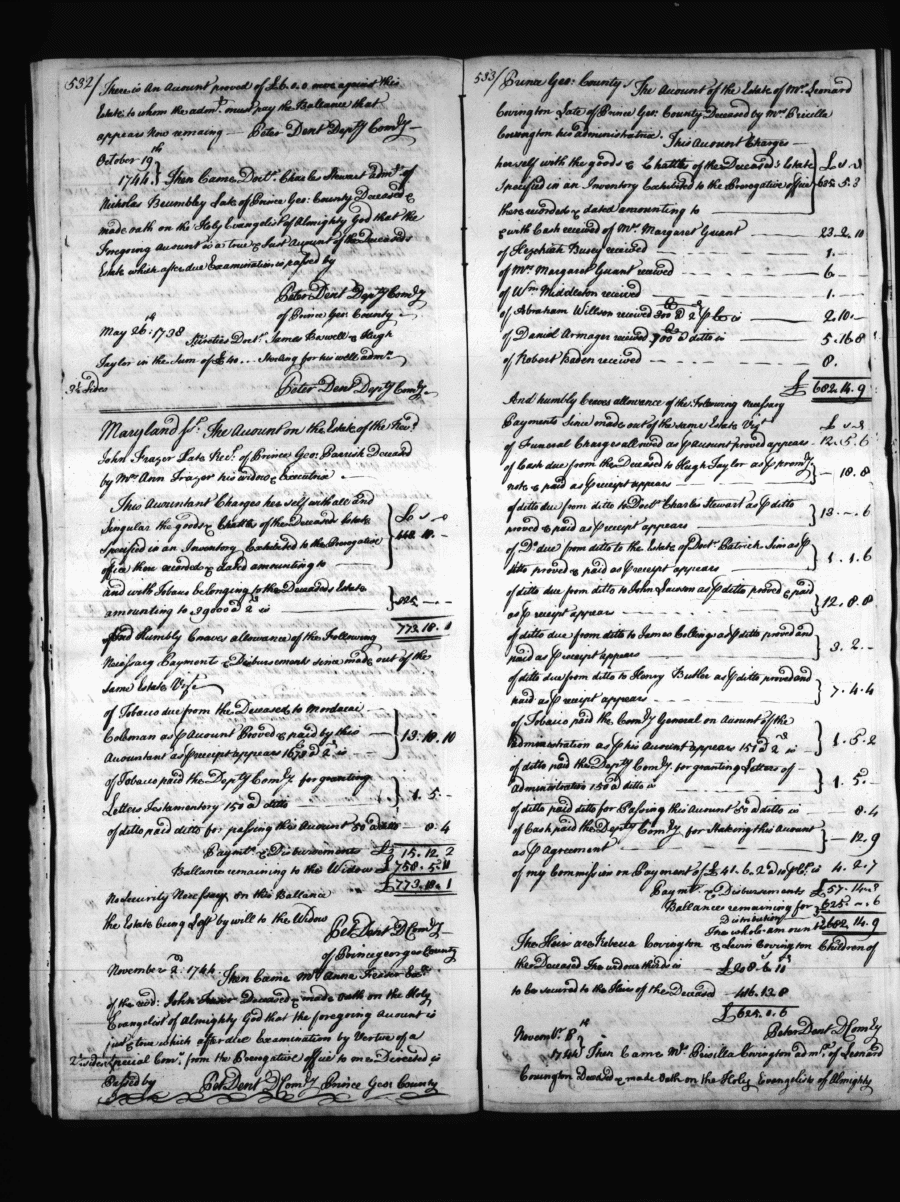 532/ There is An Account proved of £6.0.0 more against this
Estate to whom the adm.r must pay the Ballance that
appears Now remaing — Peter Dent Depty Comry
October 19th
1744. } Then Came Doct.r Charles Stewart adm.r of
Nicholas Brumbley Late of Prince Geo: County Deceased &
made oath on the Holy Evangelist of Almighty God that the
Foregoing Account is a true & Just Account of the Deceaseds
Estate which after due Examination is passed by
Peter Dent Depty Comry
of Prince Geo: County
May 26th: 1738
Sureties Doct.r James Boswell & Hugh
Taylor in the Sum of £40... Sterling for his well adm.n
2½ Sides
Peter Dent Depty Comry
Maryland ss. The Account on the Estate of the Rev.d
John Frazer Late Rec.r of Prince Geo: Parrish Deceased
by Mrs Ann Frazer his widow & Executrix
This Accountant Charges herself with all and
Singular the goods & Chattles of the Deceaseds Estate } £ s d
specified in an Inventory Exhibited to the Prerogative } 448. 18. -
office there recorded & dated amounting to
and with Tobaco belonging to the Deceaseds Estate
amounting to 39000 a 2d is } 325 — -
773.18.1
And Humbly Craves allowance of the Following
Necessary Payments & Disbursements since made out of the
same Estate Viz.
of Tobacco due from the Deceased to Mordecai
Coleman as P Account Proved & paid by this } 13.18.10
Accountant as P receipt appears 1678 a 2d is
of Tobaco paid the Depty Comry for granting
Letters Testamentory 150 a ditto } 1. 5 -
of ditto paid ditto for passing this Account 50 a ditto — 8. 4
Paymts & Disbursements £ 15. 12. 2
Ballance remaining to the Widow £ 758. 5. 11
£ 773. 18. 1
No Security Necessary on this Ballance
the Estate being Left by will to the Widow
Pet. Dent D Comry
of Prince georges County
November 2d: 1744. Then Came Mrs Anne Frazer Exc.x
of the rev.d: John Frazer Deceased & made oath on the Holy
Evangelist of Almighty God that the foregoing Account is
just & true which after due Examination by Vertue of a
2 sides Special Com.n from the Prerogative office to me Directed is
Passed by Pet. Dent D Comry Prince Geo: County
533/ Prince Geo: County/ The Account of the Estate of Mr Leonard
Covington Late of Prince Geo: County Deceased by Mrs Pricilla
Covington his administratrix. This Account Charges
herself with the goods & Chattles of the Deceaseds Estate } £ s d
Specified in an Inventory Exhibited to the Prerogative office } 635. 5. 3
there recorded & dated amounting to
& with Cash received of Mrs Margaret Guant — 23. 2. 10
of Hezekiah Busey received — 1. -
of Mrs Margaret Guant received — 6 -
of Wm Middleton received — 1. -
of Abraham Willson received 300 a 2d P lb is — 2. 10. -
of Daniel Armager received 700 a ditto is — 5. 16. 8
of Robert Baden received — 8.
£ 682. 14. 9
And humbly Craves allowance of the Following necessary
Payments Since made out of the same Estate Viz.t £ s d
of Funeral Charges allowed as P Account proved appears — 12. 5. 6
of Cash due from the Deceased to Hugh Taylor as P promry
note & paid as P receipt appears } — 18. 8
of ditto due from ditto to Doct.r Charles Stewart as P ditto
proved & paid as P receipt appears } 13. -. 6
of Do due from ditto to the Estate of Doct.r Patrick Sim as P
ditto proved & paid as P receipt appears } 1. 1. 6
of ditto due from ditto to John as P ditto proved & paid
as P receipt appears } 12. 8. 8
of ditto due from ditto to James Collings as P ditto proved and
paid as P receipt appears } 3. 2. -
of ditto due from ditto to Henry Butler as P ditto proved and
paid as P receipt appears } 7. 4. 4
of Tobaco paid the Comry General on Account of the
administration as P his Account appears 157 a 2d is } 1. 6. 2
of ditto paid the Depty Comry for granting Letters of
administration 150 a ditto is } 1. 5. -
of ditto paid ditto for Passing this Account 50 a ditto is — 8. 4
of Cash paid the Depty Comry for Stating this Account
as P Agreement } — 12. 9
of my Commission on Payment of £41. 6. 2 a 10 P Ct is 4. 2. 7
Paymts & Disbursements £ 57. 14. 3
Ballance remaining for } 625. -. 6
Distribution
The whole am.on £ 682. 14. 9
The Heirs are Rebecca Covington & Levin Covington Children of
the Deceased The widows third is — £ 208. 6. 10
to be secured to the Heirs of the Deceased — 416. 13. 8
£ 625. 0. 6
Peter Dent D Comry
Novem.r 8th
1744 } Then Came Mrs Pricilla Covington adm.x of Leonard
Covington Deceased & made Oath on the Holy Evangelists of Almighty